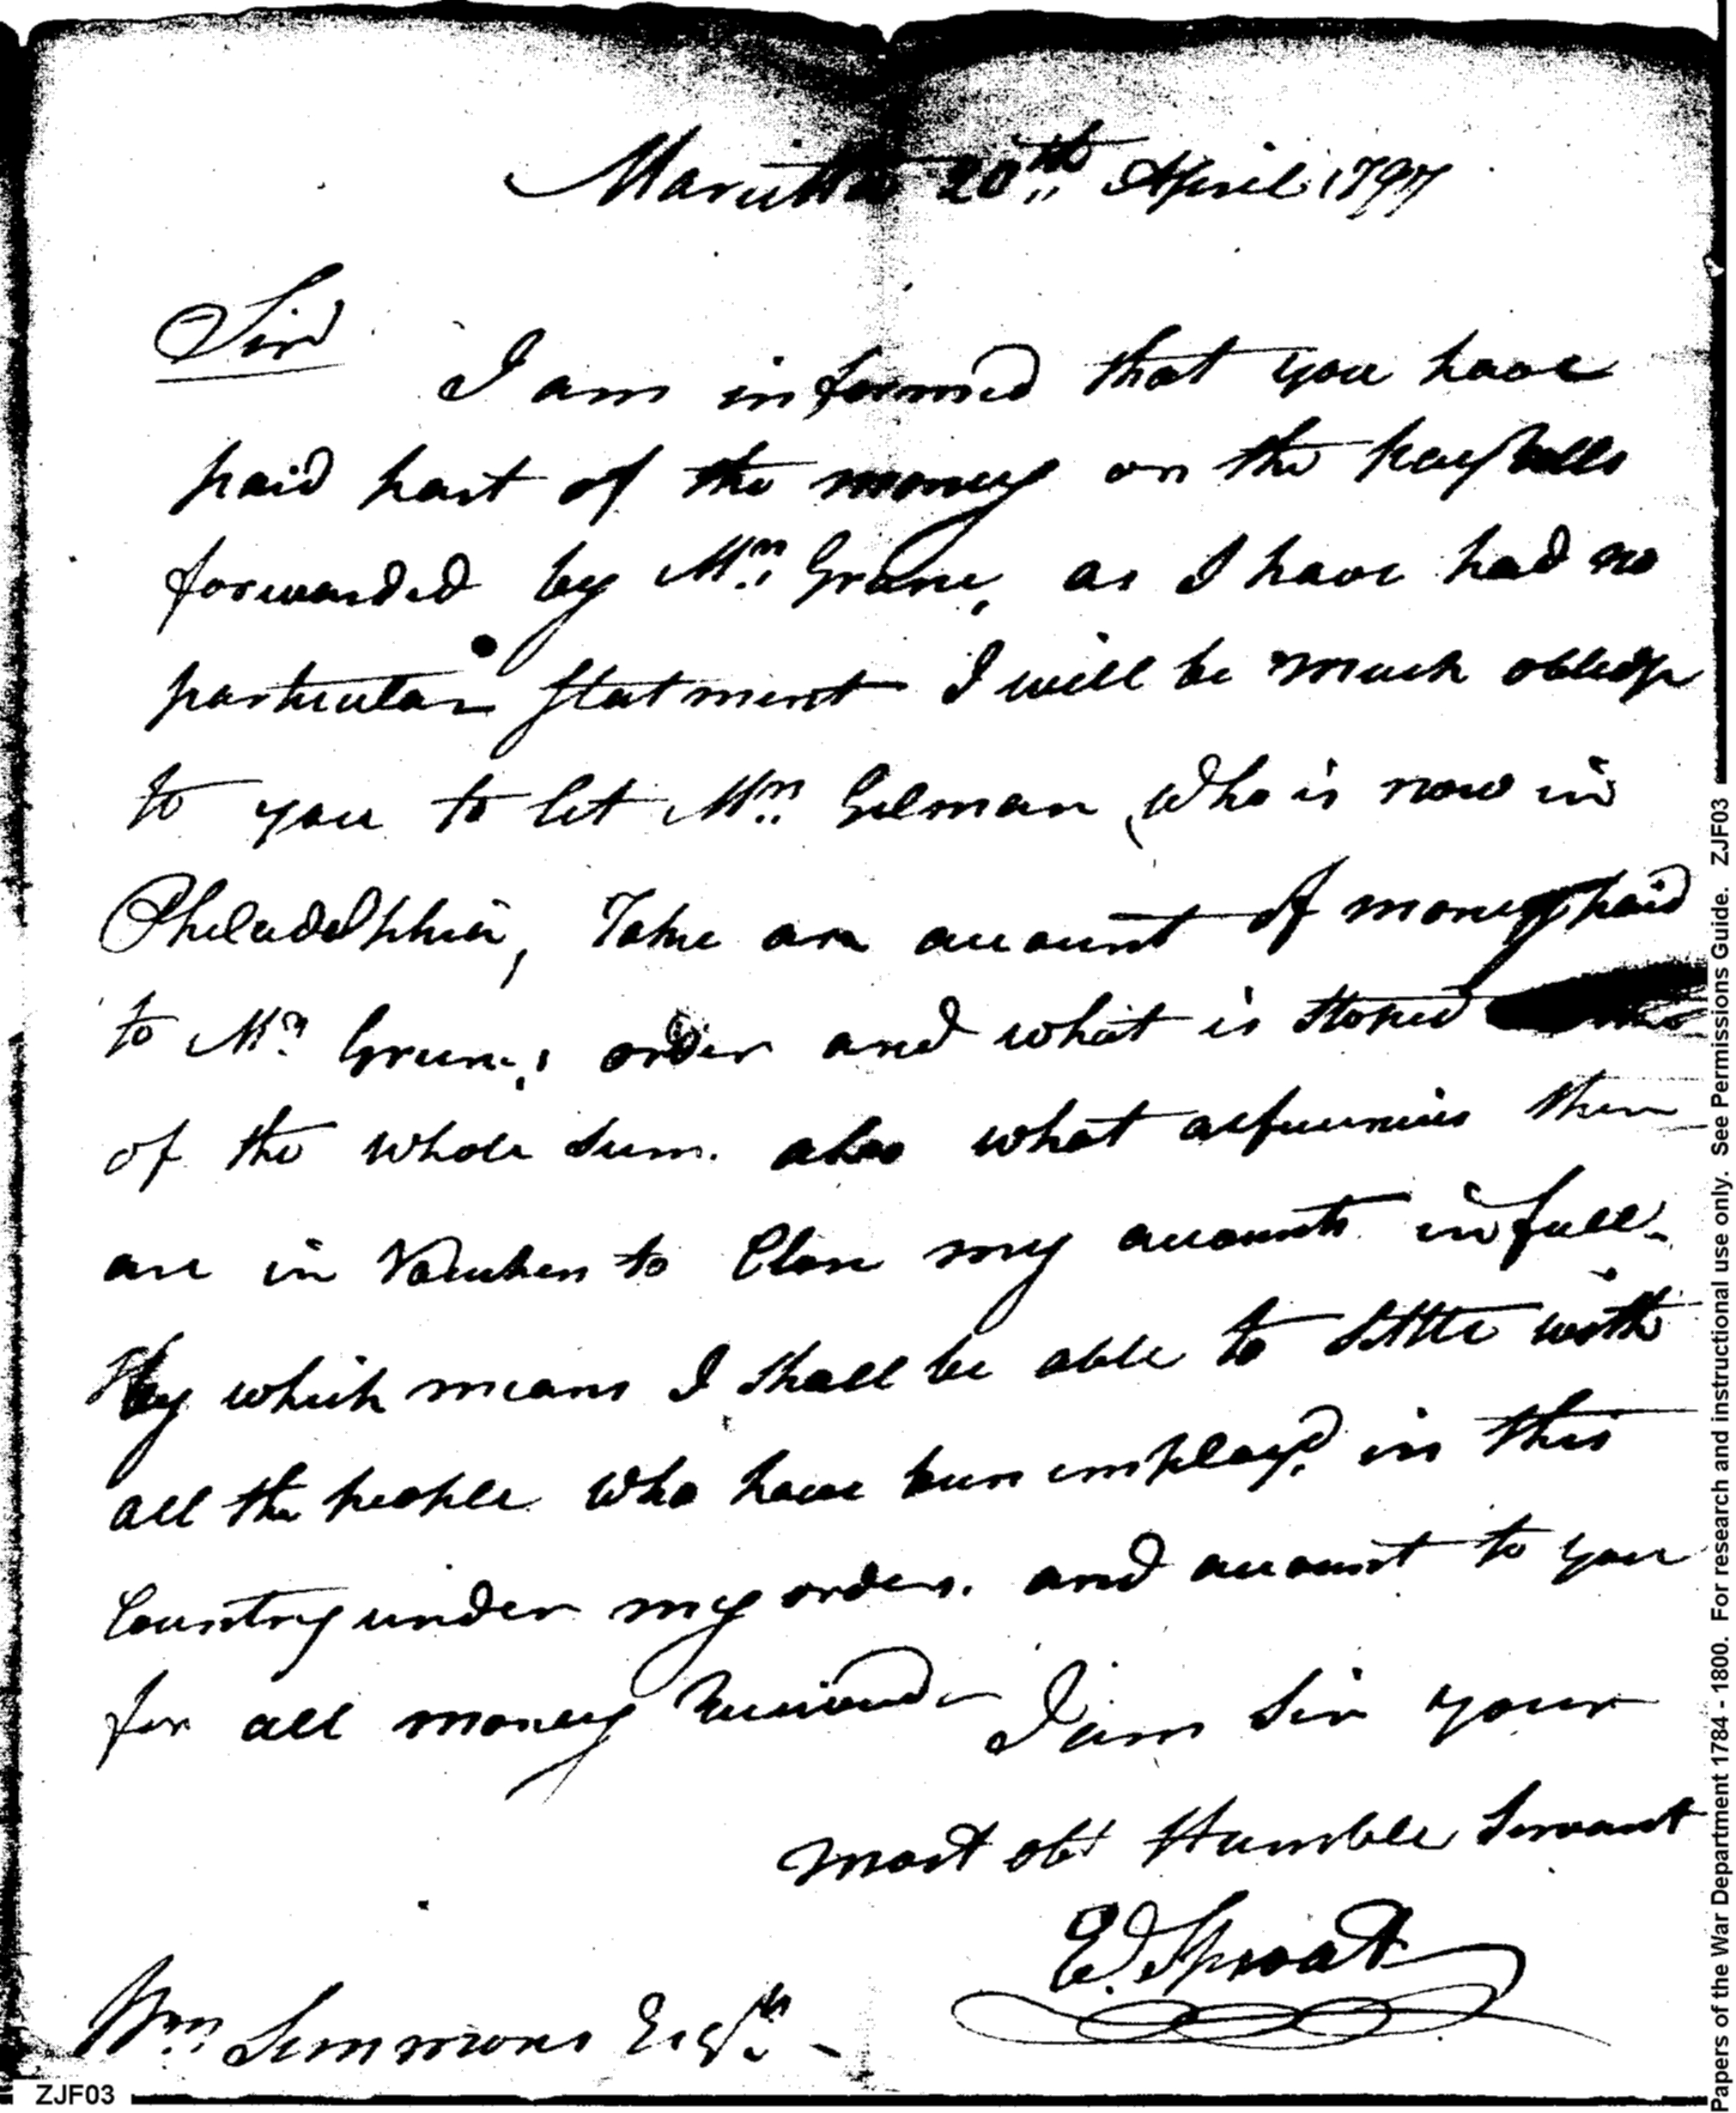 Marietta 20th April 1797
Sir
I am informed that you have
paid part of the money on the pay Rolls
forwarded by Mr. Greene, as I have had no
particular statment I will be much obliedg
to you to let Mr. Gilman, who is now in
Philadelphia, Take an account of money paid
to Mr. Greene,s order and what is stoped
of the whole sum. also what are in Vouchers to Close my accounts in full.
By which means I shall be able to settle with
all the people who have been employd. in this
Country under my orders. and account to you
for all money Received – I am Sir your
most obt Humble Servant
E. Sproat
Wm. Simmons Esqr. -
ZJF03
Papers of the War Department 1784 - 1800. For research and instructional use only. See Permissions Guide. ZJF03